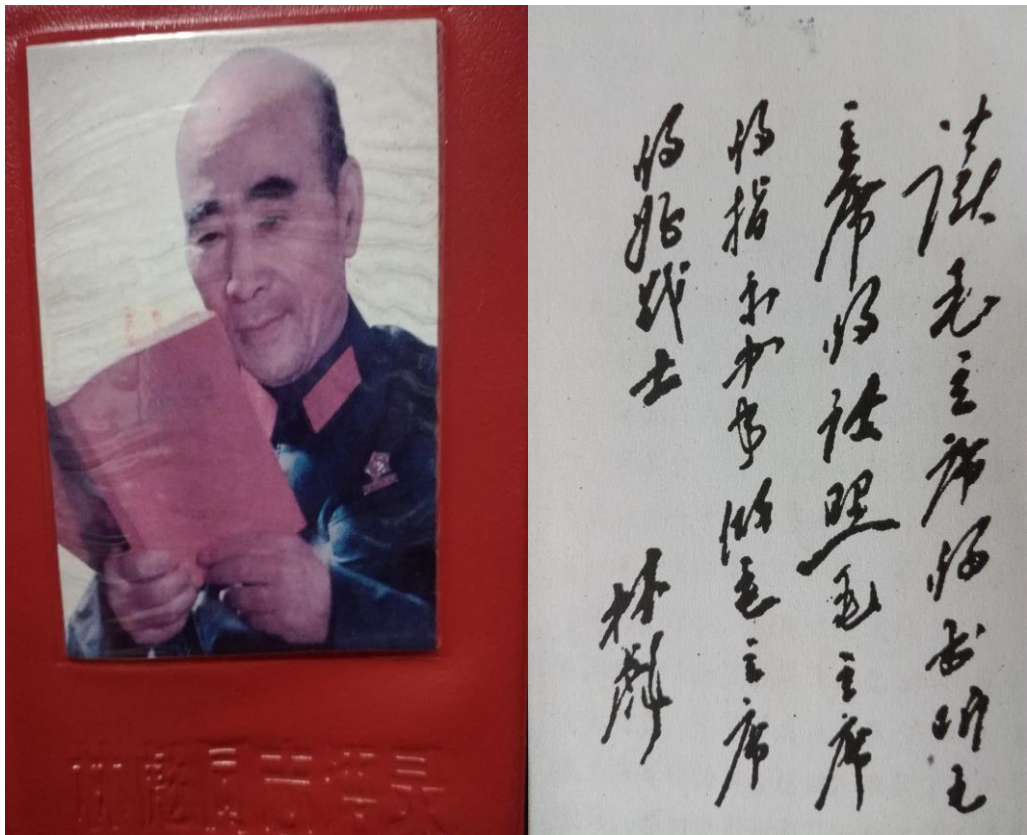 林彪
读毛主席的书听毛
主席的话照毛主席
的指示办事做毛主席
的好战士
林彪